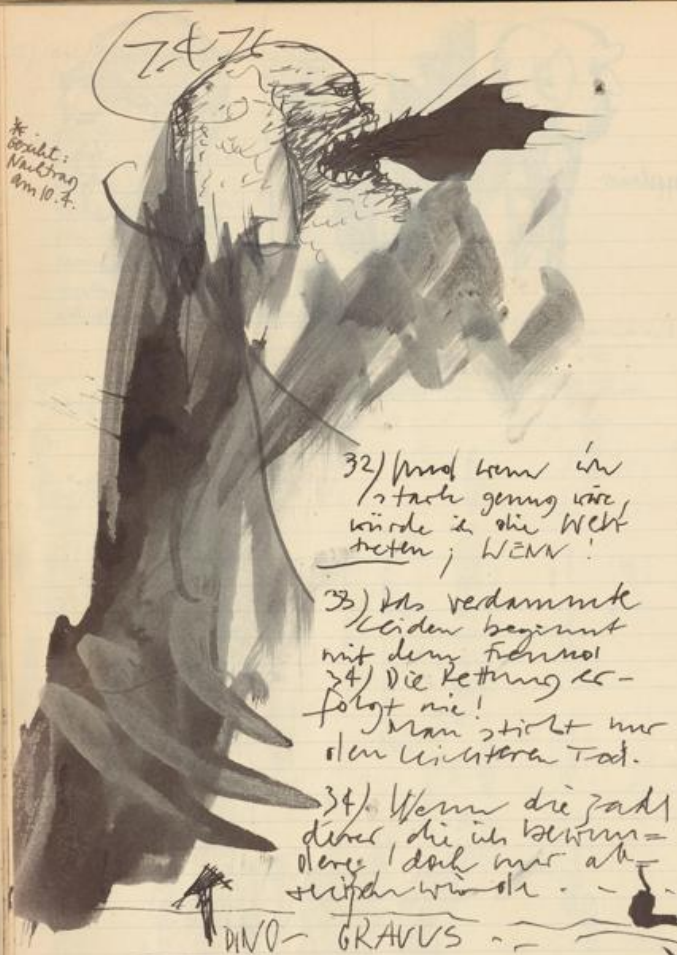 7.4.76
* Gesicht:
Nachtrag
am 10.4.
32) Und wenn ich
stark genug wäre,
würde ich die Welt
treten; WENN!
33) Das verdammte
Leiden beginnt
mit dem
34) Die Rettung er-
folgt nie!
Man stirbt nur
den leichteren Tod.
34) Wenn die Zahl
derer die ich bewun=
dere, doch nur ab=
würde.
DINO- GRAVVS